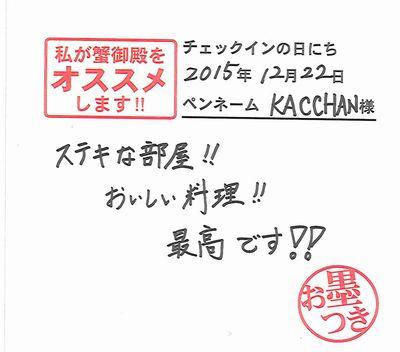 私が蟹御殿を
オススメ
します!!
チェックインの日にち
2015年 12月22日
ペンネーム KACCHAN様
ステキな部屋!!
おいしい料理!!
最高です!!
お墨
つき